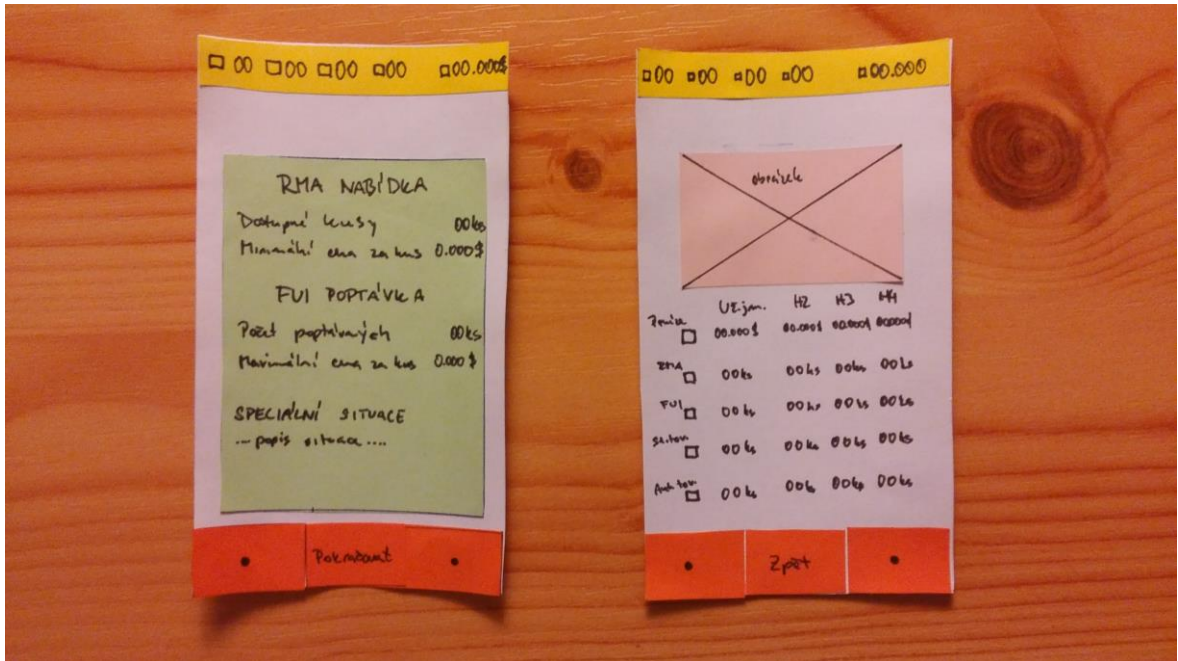 □ 00 □00 □00 □00 □00.000$
RMA NABÍDKA
Dostupné kusy 00ks
Minimální cena za kus 0.000$
FUI POPTÁVKA
Počet poptávaných 00ks
Maximální cena za kus 0.000$
SPECIÁLNÍ SITUACE
... popis situace ....
Pokračovat
□00 □00 □00 □00 □00.000
obrázek
Už.jm. H2 H3 H4
Peníze □ 00.000$ 00.000$ 00.000$ 00.000$
RMA □ 00ks 00ks 00ks 00ks
FUI □ 00ks 00ks 00ks 00ks
□ 00ks 00ks 00ks 00ks
□ 00ks 00ks 00ks 00ks
Zpět